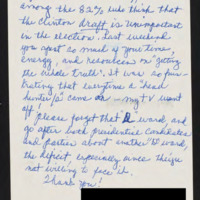 among the 82% who think that
the Clinton draft is unimportant
in the election. Last weekend
you spent so much of your time,
energy, and resources on "getting
the whole truth". It was so frus-
trating that everytime a "head
hunter(s) came on – my t v went
off!
Please forget that D word and
go after both presidential candidates
and parties about another "D" word,
the deficit, especially since they're
not willing to face it.
Thank you!